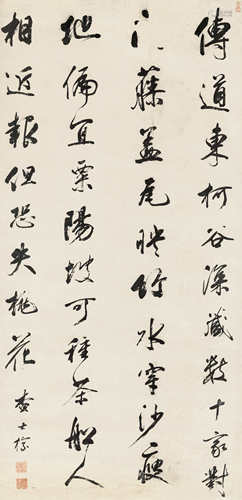 傳道東柯谷深藏數十家對
門藤蓋瓦映竹水穿沙瘦
地偏宜粟陽坡可種茶船人
相近報但恐失桃花
查士標